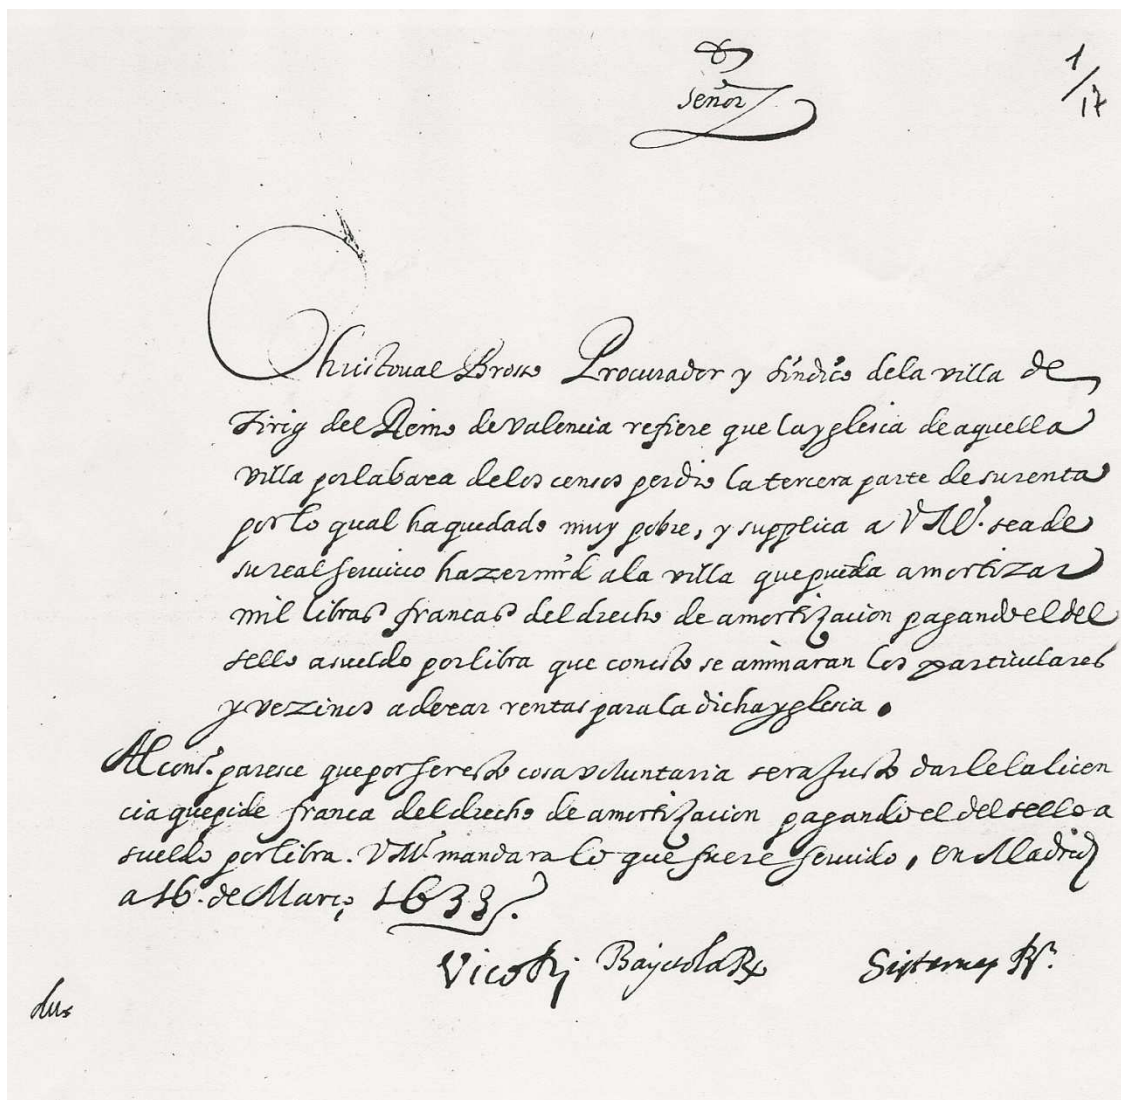 Señor
1/17
Christoual Brosso Procurador y síndico dela villa de
Tirig del Reino de Valencia refiere que la yglesia de aquella
villa por la baxa de los censos perdio la tercera parte de su renta
por lo qual ha quedado muy pobre, y supplica a V M.ᵈ sea de
su real seruicio hazer mrd a la villa que pueda amortizar
mil libras francas del drecho de amortizacion pagando el del
sello a sueldo por libra que con esto se animaran los particulares
y vezinos a dexar rentas para la dicha yglesia.
Al cons.º paresce que por ser esto cosa voluntaria sera justo darle la licen
cia que pide franca del drecho de amortizacion pagando el del sello a
sueldo por libra. V M.ᵈ mandara lo que fuere seruido, en Madrid
a 16. de Março 1633.
Bayetola R Sisternes R.